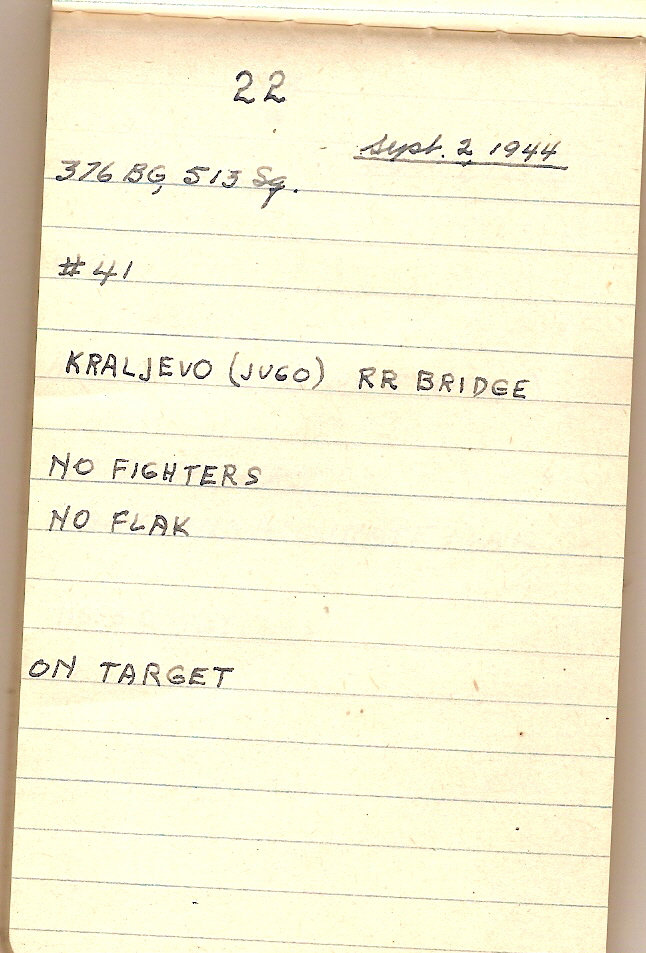 22
Sept. 2, 1944
376 BG, 513 Sq.
# 41
KRALJEVO (JUGO) RR BRIDGE
NO FIGHTERS
NO FLAK
ON TARGET